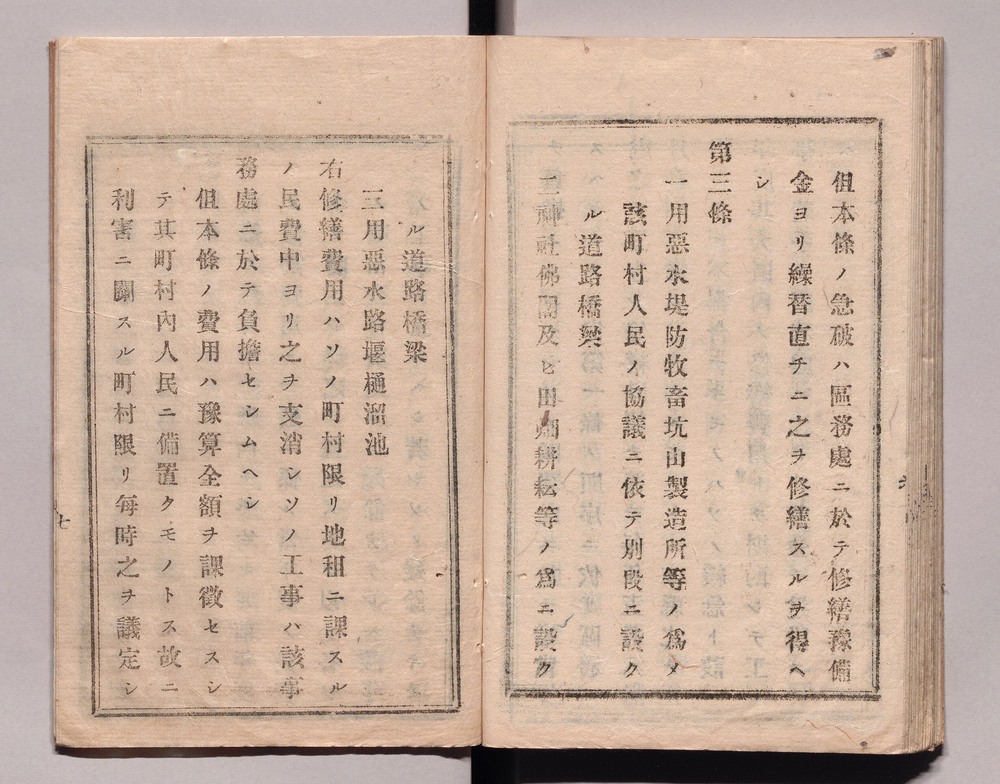 但本條ノ急破ハ區務處ニ於テ修繕豫備
金ヨリ繰替直チニ之ヲ修繕スルヲ得ヘ
シ
第三條
一用惡水堤防牧畜坑山製造所等ノ爲メ
該町村人民ノ協議ニ依テ別段ニ設ク
ル道路橋梁
二神社佛閣及ヒ田畑耕耘等ノ爲ニ設ク
ル道路橋梁
三用惡水路堰樋溜池
右修繕費用ハソノ町村限リ地租ニ課スル
ノ民費中ヨリ之ヲ支消シソノ工事ハ該事
務處ニ於テ負擔セシムヘシ
但本條ノ費用ハ豫算全額ヲ課徴セスシ
テ其町村內人民ニ備置クモノトス故ニ
利害ニ關スル町村限リ每時之ヲ議定シ
七